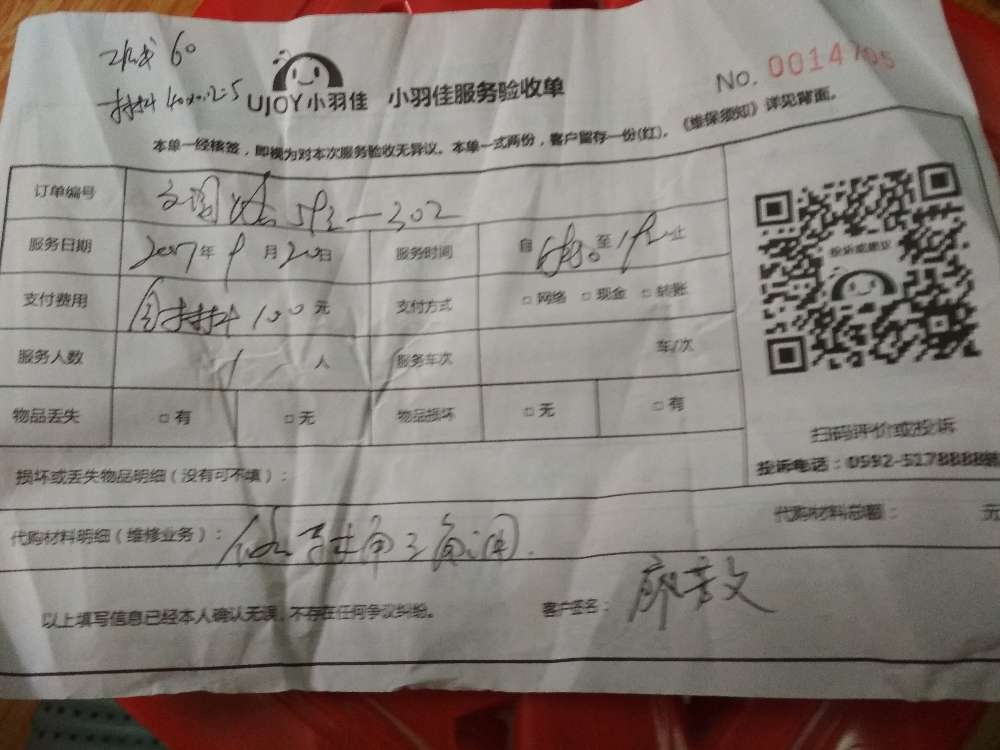 60
UJOY小羽佳 小羽佳服务验收单
No. 0014705
本单一经核签，即视为对本次服务验收无异议。本单一式两份，客户留存一份(红)。《维保须知》详见背面。
订单编号 302
服务日期 2017年9月20日 服务时间 自 至 止
支付费用 100元 支付方式 □网络 □现金 □转账
服务人数 1 人 服务车次 车/次
物品丢失 □有 □无 物品损坏 □无 □有
投诉或建议
扫码评价或投诉
投诉电话：0592-5178888
损坏或丢失物品明细（没有可不填）：
代购材料明细（维修业务）：
代购材料总额： 元
以上填写信息已经本人确认无误，不存在任何争议纠纷。 客户签名：